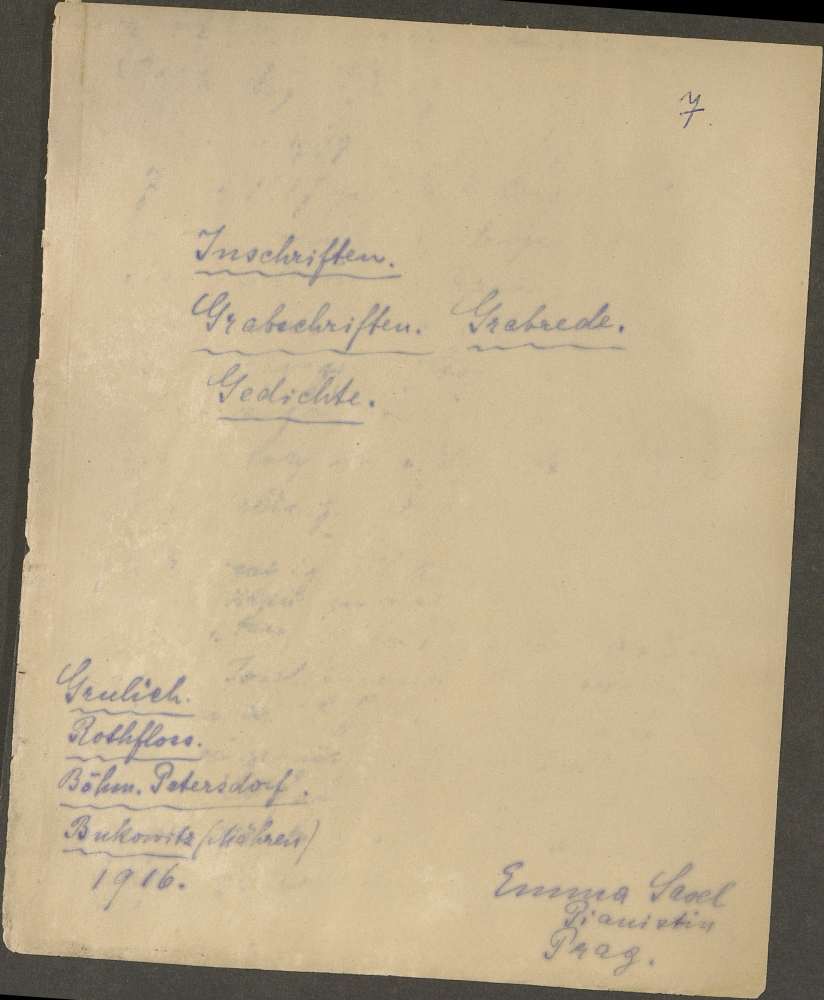 7
Inschriften.
Grabschriften. Grabrede.
Gedichte.
Grulich.
Rothfloss.
Böhm. Petersdorf.
Bukowitz (Mähren)
1916.
Emma Saxel
Pianistin
Prag.